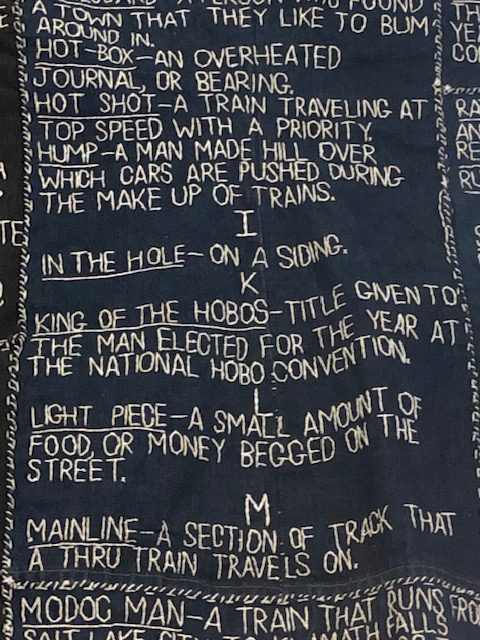 A TOWN THAT THEY LIKE TO BUM
AROUND IN.
HOT-BOX-AN OVERHEATED
JOURNAL, OR BEARING.
HOT SHOT-A TRAIN TRAVELING AT
TOP SPEED WITH A PRIORITY.
HUMP-A MAN MADE HILL OVER
WHICH CARS ARE PUSHED DURING
THE MAKE UP OF TRAINS.
I
IN THE HOLE-ON A SIDING.
K
KING OF THE HOBOS-TITLE GIVEN TO
THE MAN ELECTED FOR THE YEAR AT
THE NATIONAL HOBO CONVENTION.
L
LIGHT PIECE-A SMALL AMOUNT OF
FOOD, OR MONEY BEGGED ON THE
STREET.
M
MAINLINE-A SECTION OF TRACK THAT
A THRU TRAIN TRAVELS ON.
MODOC MAN-A TRAIN THAT RUNS FROM
SALT LAKE CITY TO KLAMATH FALLS